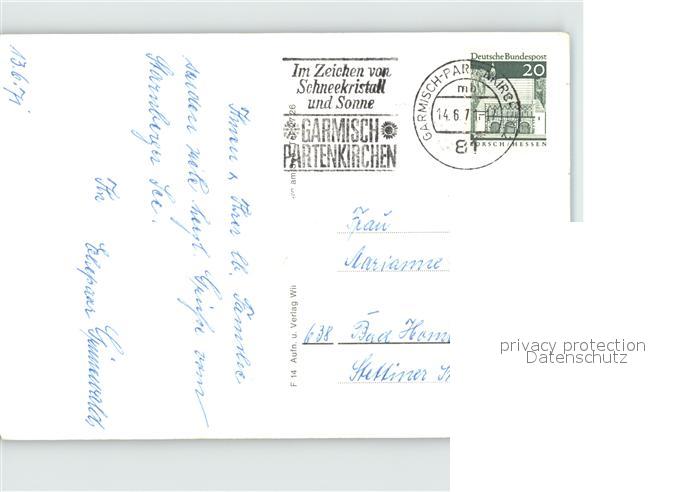 13.6.71
Ihnen u. Ihrer lb. Familie
senden viele herzl. Grüße vom
Starnberger See.
Ihr
Ehepaar Grünewald
Im Zeichen von
Schneekristall
und Sonne
GARMISCH
PARTENKIRCHEN
GARMISCH-PARTENKIRCHEN
mb
14.6.71
81
Deutsche Bundespost
20
LORSCH/HESSEN
F 14 Aufn. u. Verlag Wil
Frau
Marianne
638 Bad Hom
Stettiner
privacy protection
Datenschutz